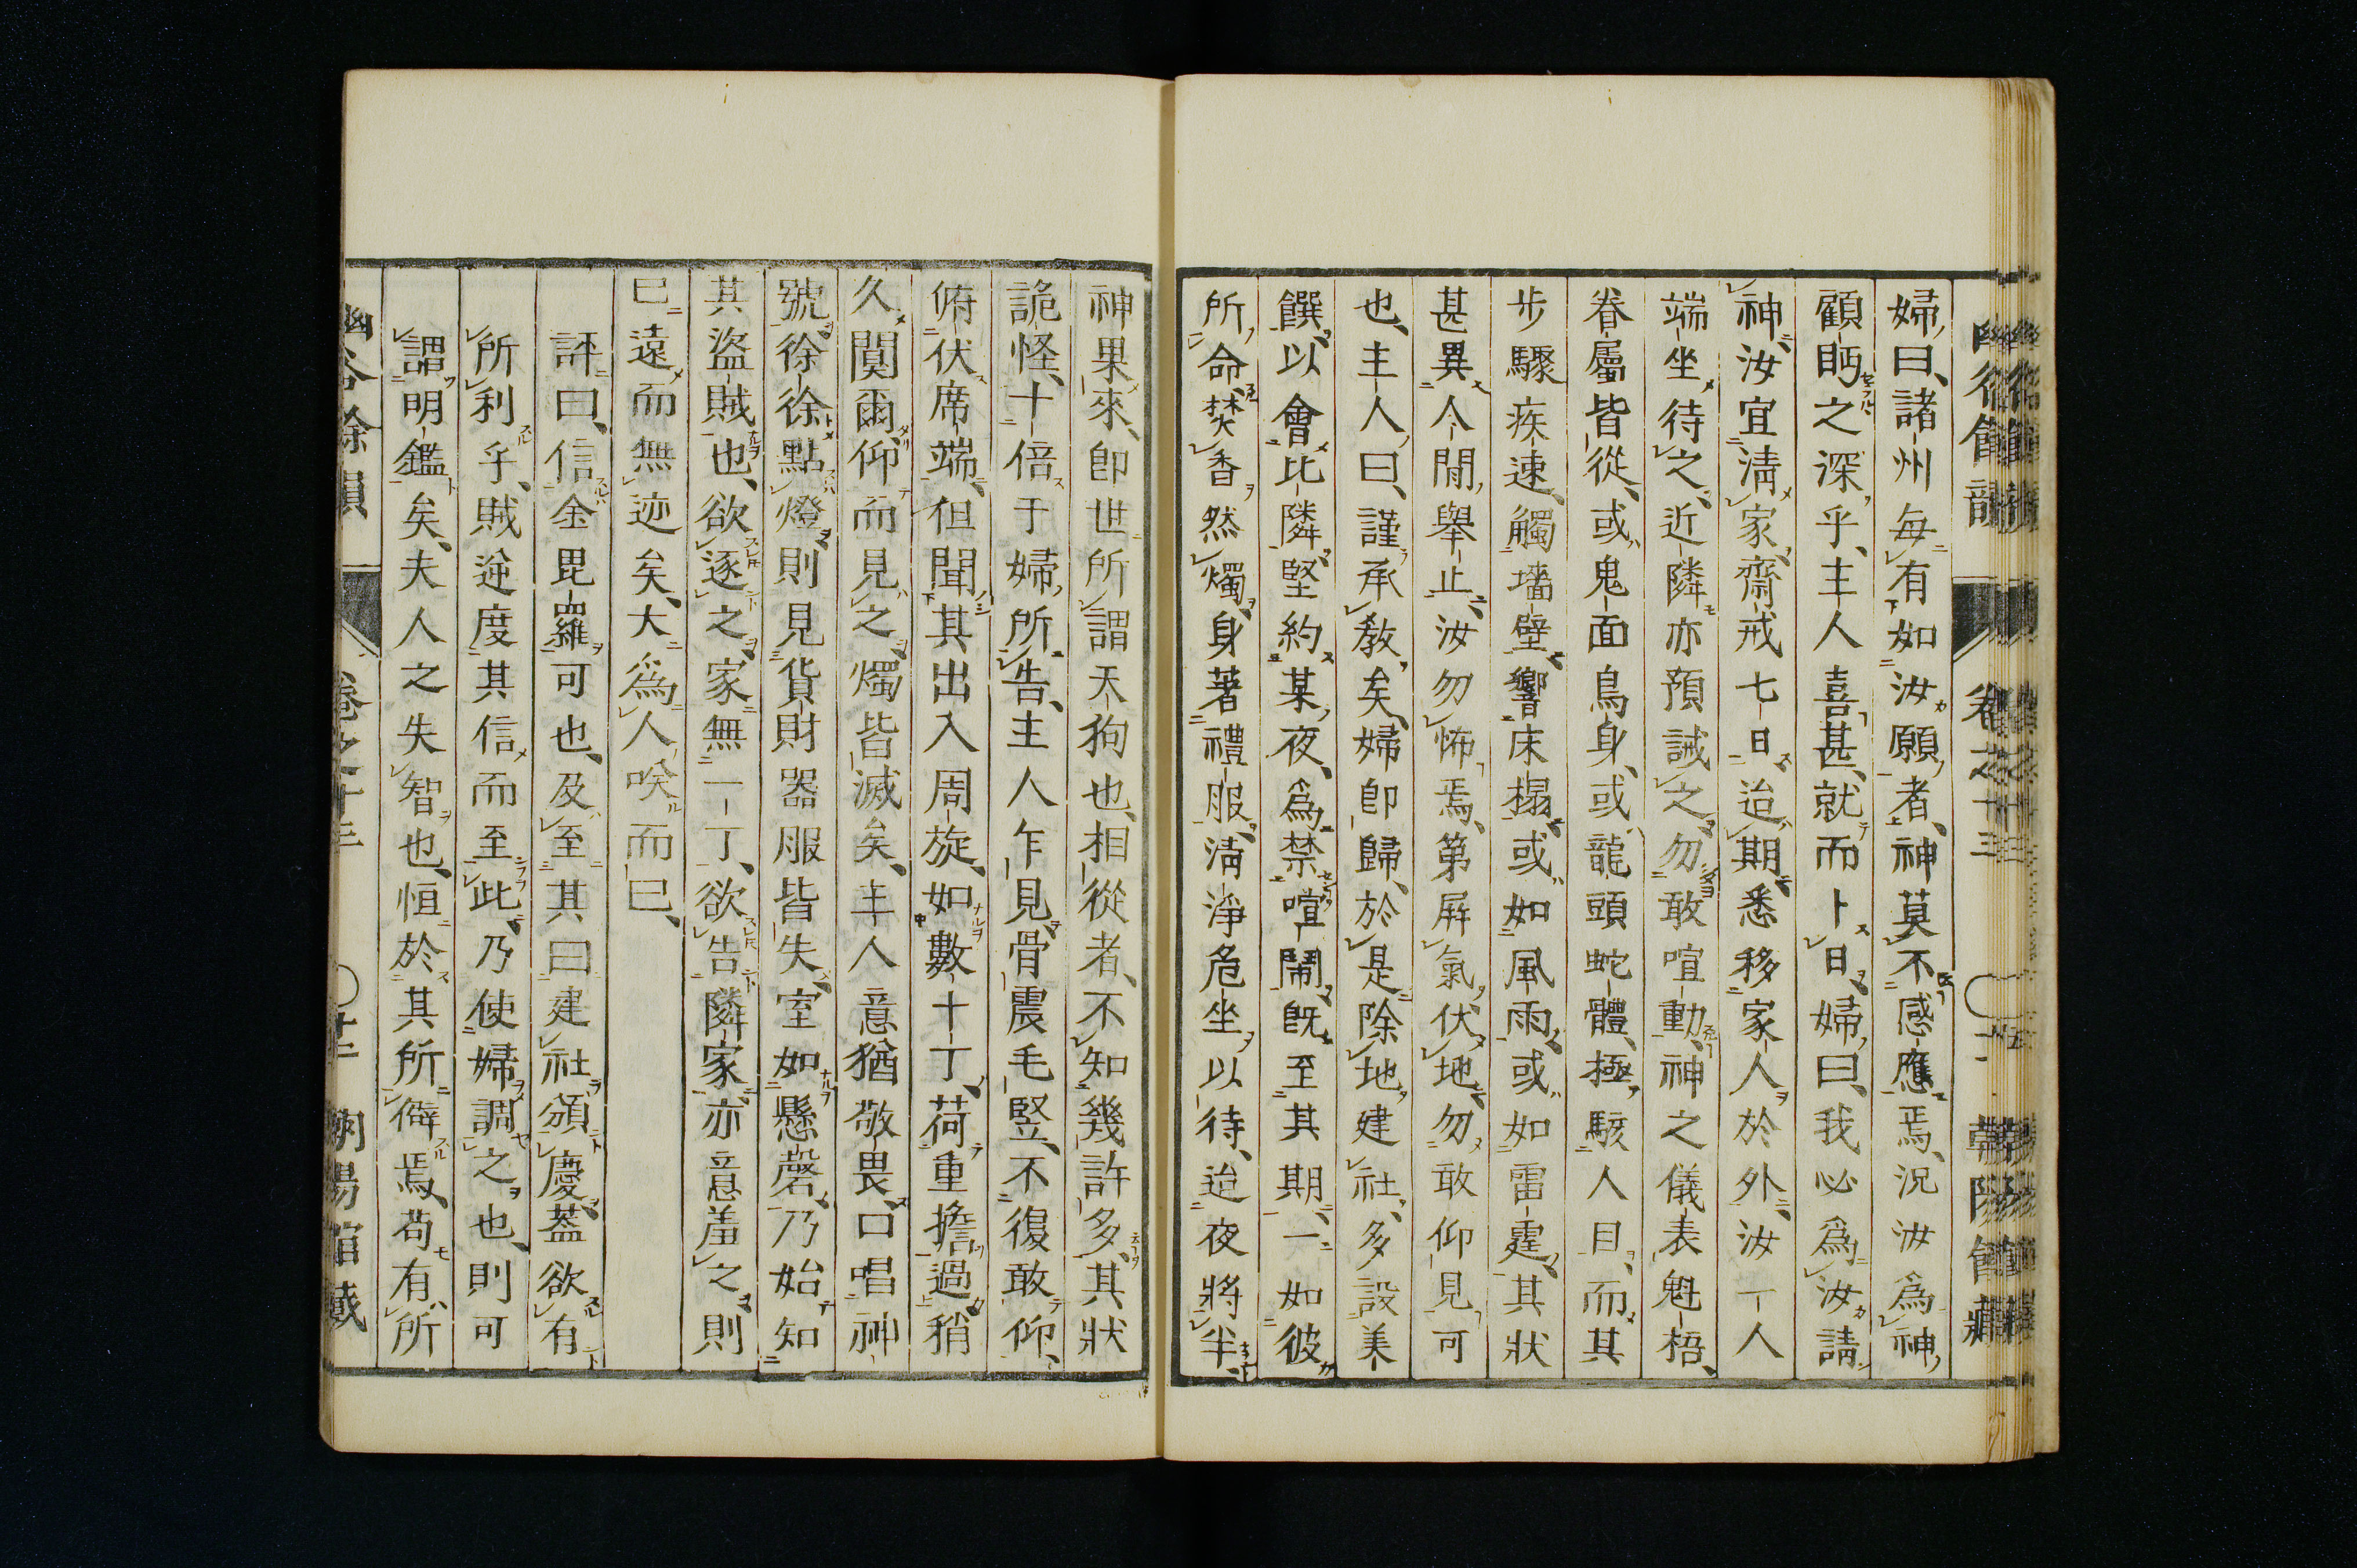 婦曰、諸州每有如汝願者、神莫不感應焉、況汝爲神
顧眄之深乎、主人喜甚、就而卜日、婦曰、我必爲汝請
神、汝宜淸家齋戒七日、迨期悉移家人於外、汝一人
端坐待之、近隣亦預誡之、勿敢喧動、神之儀表魁梧、
眷屬皆從、或鬼面鳥身、或龍頭蛇體、極駭人目、而其
步驟疾速、觸墻壁、響床榻、或如風雨、或如雷霆、其狀
甚異人間擧止、汝勿怖焉、第屛氣伏地、勿敢仰見可
也、主人曰、謹承教矣、婦卽歸、於是除地建社、多設美
饌、以會比隣、堅約某夜、爲禁喧鬧、旣至其期、一如彼
所命、焚香然燭、身著禮服、淸淨危坐以待、迨夜將半、
神果來、卽世所謂天狗也、相從者、不知幾許多、其狀
詭怪、十倍于婦所告、主人乍見、骨震毛竪、不復敢仰、
俯伏席端、但聞其出入周旋、如數十丁荷重擔過、稍
久闃爾、仰而見之、燭皆滅矣、主人意猶敬畏、口唱神
號、徐徐點燈、則見貨財器服皆失、室如懸磬、乃始知
其盜賊也、欲逐之、家無一丁、欲告隣家、亦意羞之、則
已遠而無迹矣、大爲人咲而已、
評曰、信金毘羅可也、及至其曰建社頒慶、蓋欲有
所利乎、賊逆度其信而至此、乃使婦調之也、則可
謂明鑑矣、夫人之失智也、恒於其所僻焉、苟有所
幽谷餘韻 卷之十三 朝陽館藏